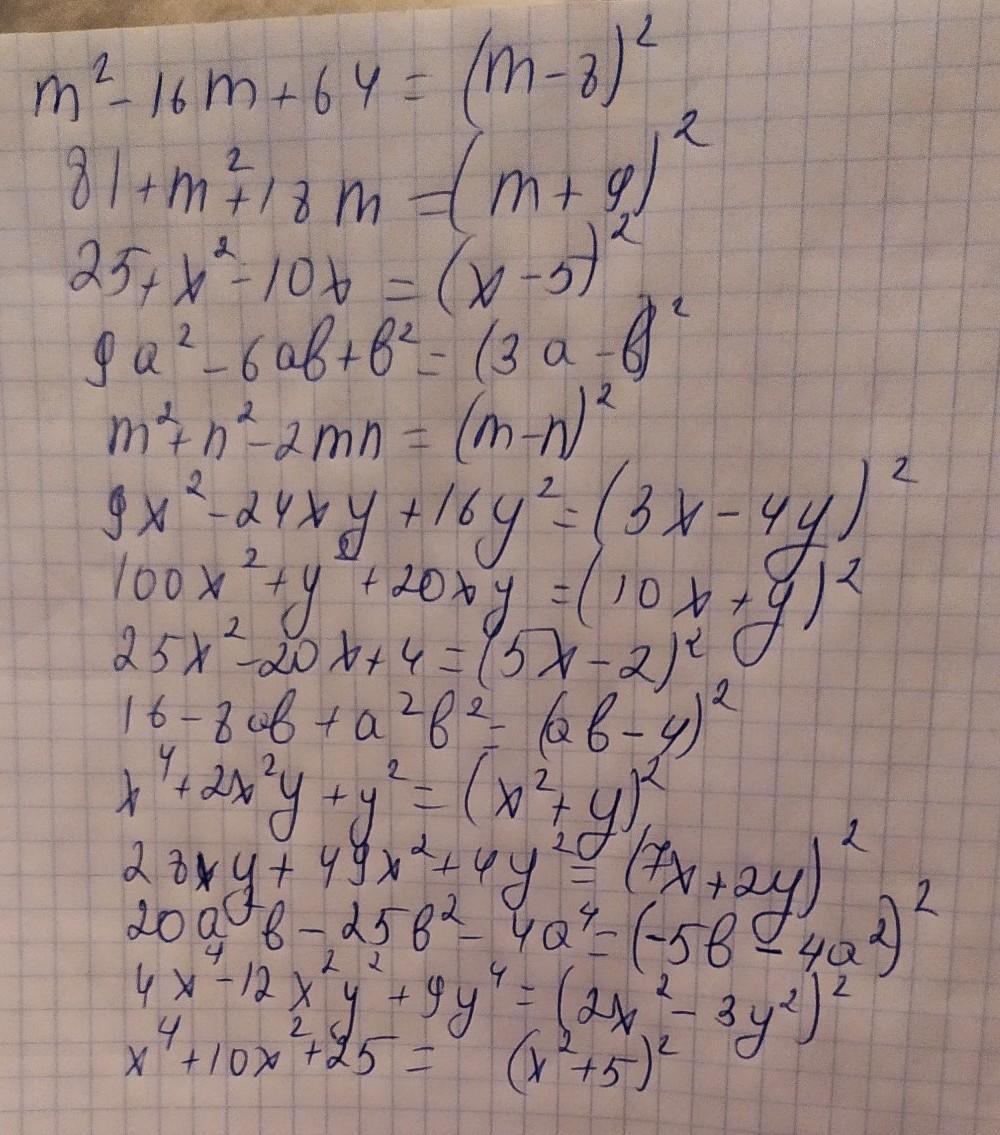 m² - 16m + 64 = (m - 8)²
81 + m² + 18m = (m + 9)²
25 + x² - 10x = (x - 5)²
9a² - 6ab + b² = (3a - b)²
m² + n² - 2mn = (m - n)²
9x² - 24xy + 16y² = (3x - 4y)²
100x² + y² + 20xy = (10x + y)²
25x² - 20x + 4 = (5x - 2)²
16 - 8ab + a²b² = (ab - 4)²
x⁴ + 2x²y + y² = (x² + y)²
28xy + 49x² + 4y² = (7x + 2y)²
20a²b - 25b² - 4a⁴ = (-5b - 4a²)²
4x⁴ - 12x²y² + 9y⁴ = (2x² - 3y²)²
x⁴ + 10x² + 25 = (x² + 5)²